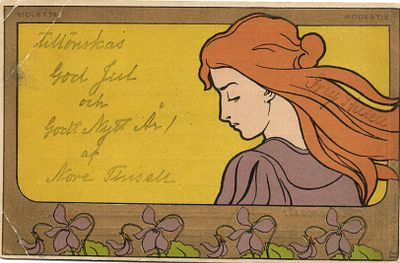 VIOLETTE
MODESTIE
tillönskas
God Jul
och
Godt Nytt År!
af
Nore